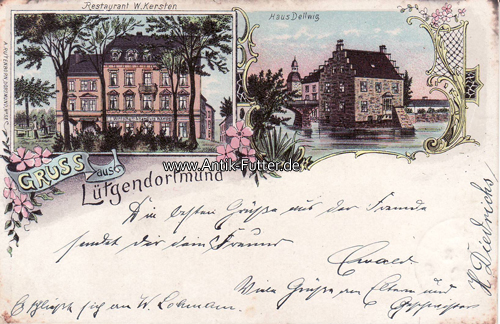 Restaurant W. Kersten
Haus Dellwig
GRUSS aus
Lütgendortmund
www.Antik-Futter.de
Die besten Grüße aus der Fremde
sendet dir dein Freund
Ewald
Viele Grüße an Eltern und
Geschwister
Es schließt sich an W. Lohmann.
H. Diedrichs